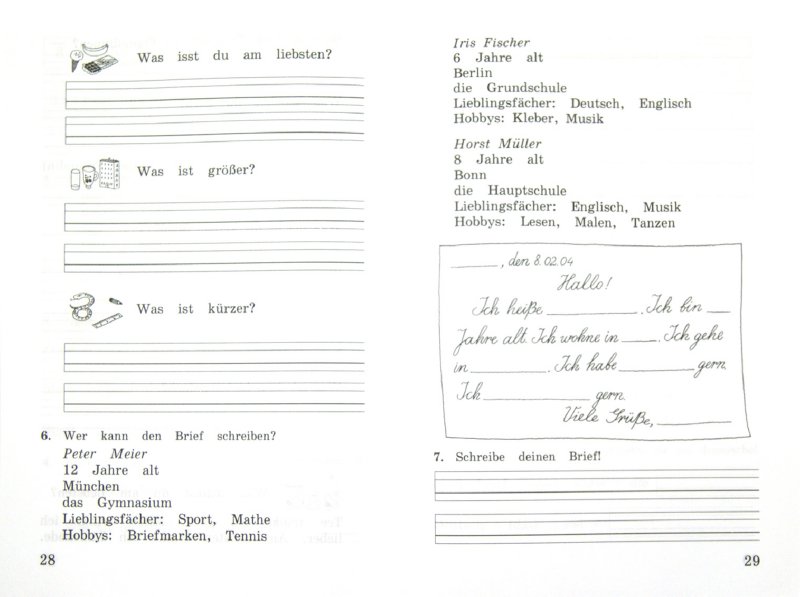 Was isst du am liebsten?
Was ist größer?
Was ist kürzer?
6. Wer kann den Brief schreiben?
Peter Meier
12 Jahre alt
München
das Gymnasium
Lieblingsfächer: Sport, Mathe
Hobbys: Briefmarken, Tennis
28
Iris Fischer
6 Jahre alt
Berlin
die Grundschule
Lieblingsfächer: Deutsch, Englisch
Hobbys: Kleber, Musik
Horst Müller
8 Jahre alt
Bonn
die Hauptschule
Lieblingsfächer: Englisch, Musik
Hobbys: Lesen, Malen, Tanzen
, den 8.02.04
Hallo!
Ich heiße . Ich bin
Jahre alt. Ich wohne in . Ich gehe
in . Ich habe gern.
Ich gern.
Viele Grüße,
7. Schreibe deinen Brief!
29